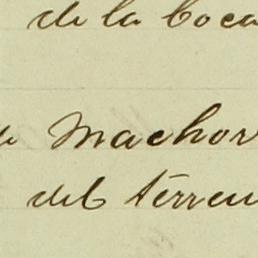 de la boca
de Machor
del terreu